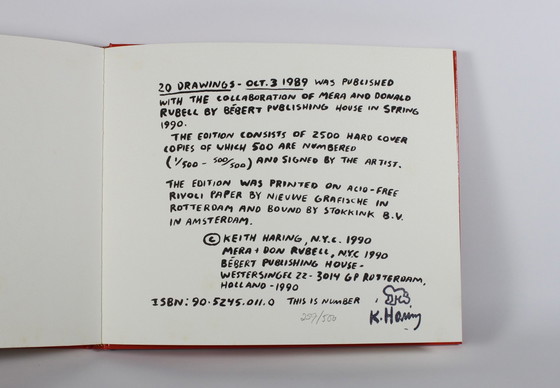 20 DRAWINGS - OCT. 3 1989 WAS PUBLISHED
WITH THE COLLABORATION OF MERA AND DONALD
RUBELL BY BÉBERT PUBLISHING HOUSE IN SPRING
1990.
THE EDITION CONSISTS OF 2500 HARD COVER
COPIES OF WHICH 500 ARE NUMBERED
(1/500 - 500/500) AND SIGNED BY THE ARTIST.
THE EDITION WAS PRINTED ON ACID-FREE
RIVOLI PAPER BY NIEUWE GRAFISCHE IN
ROTTERDAM AND BOUND BY STOKKINK B.V.
IN AMSTERDAM.
© KEITH HARING, N.Y.C. 1990
MERA + DON RUBELL, NYC 1990
BÉBERT PUBLISHING HOUSE-
WESTERSINGEL 22 - 3014 GP ROTTERDAM,
HOLLAND - 1990
ISBN: 90.5245.011.0 THIS IS NUMBER
207/500
K. Haring